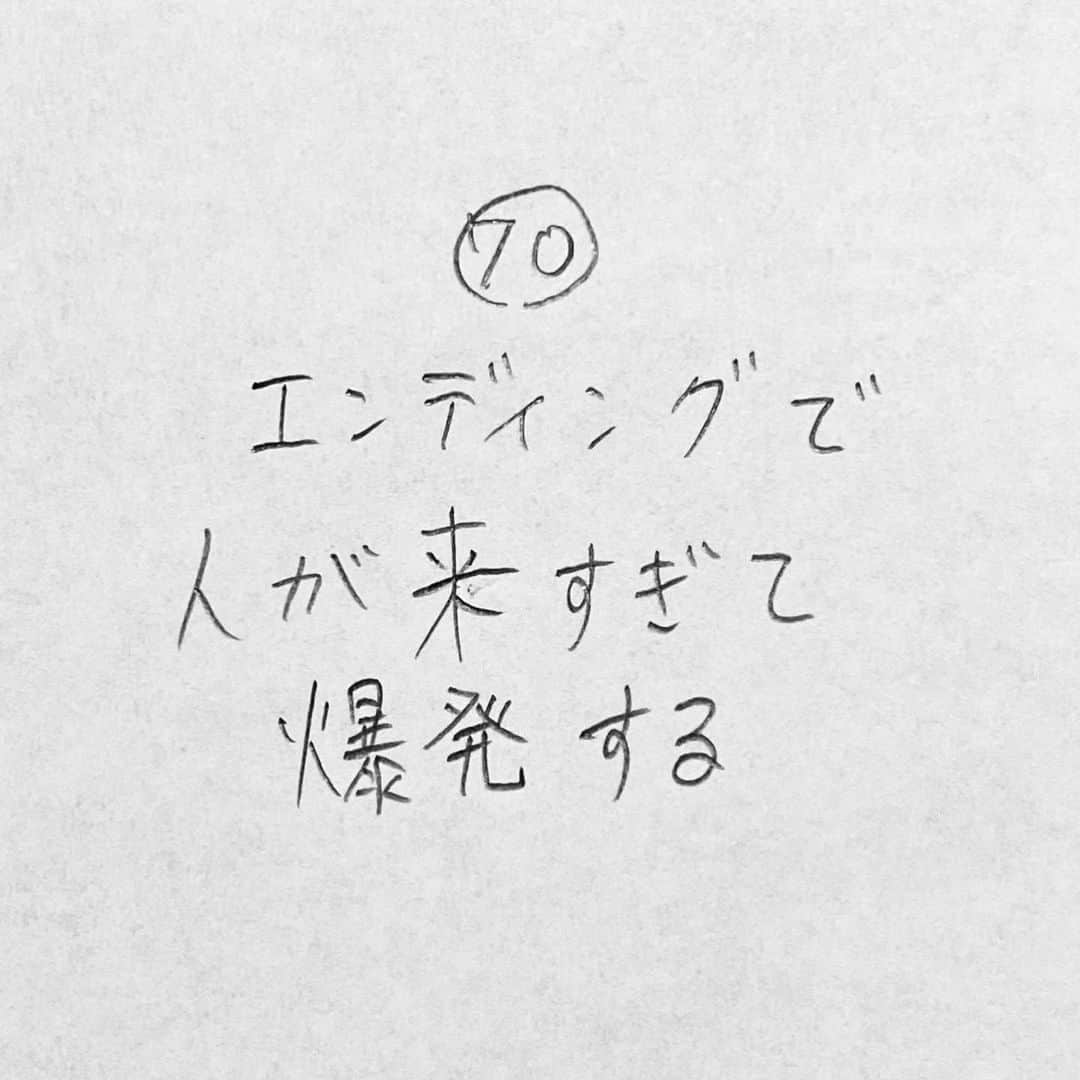 70
エンディングで
人が来すぎて
爆発する